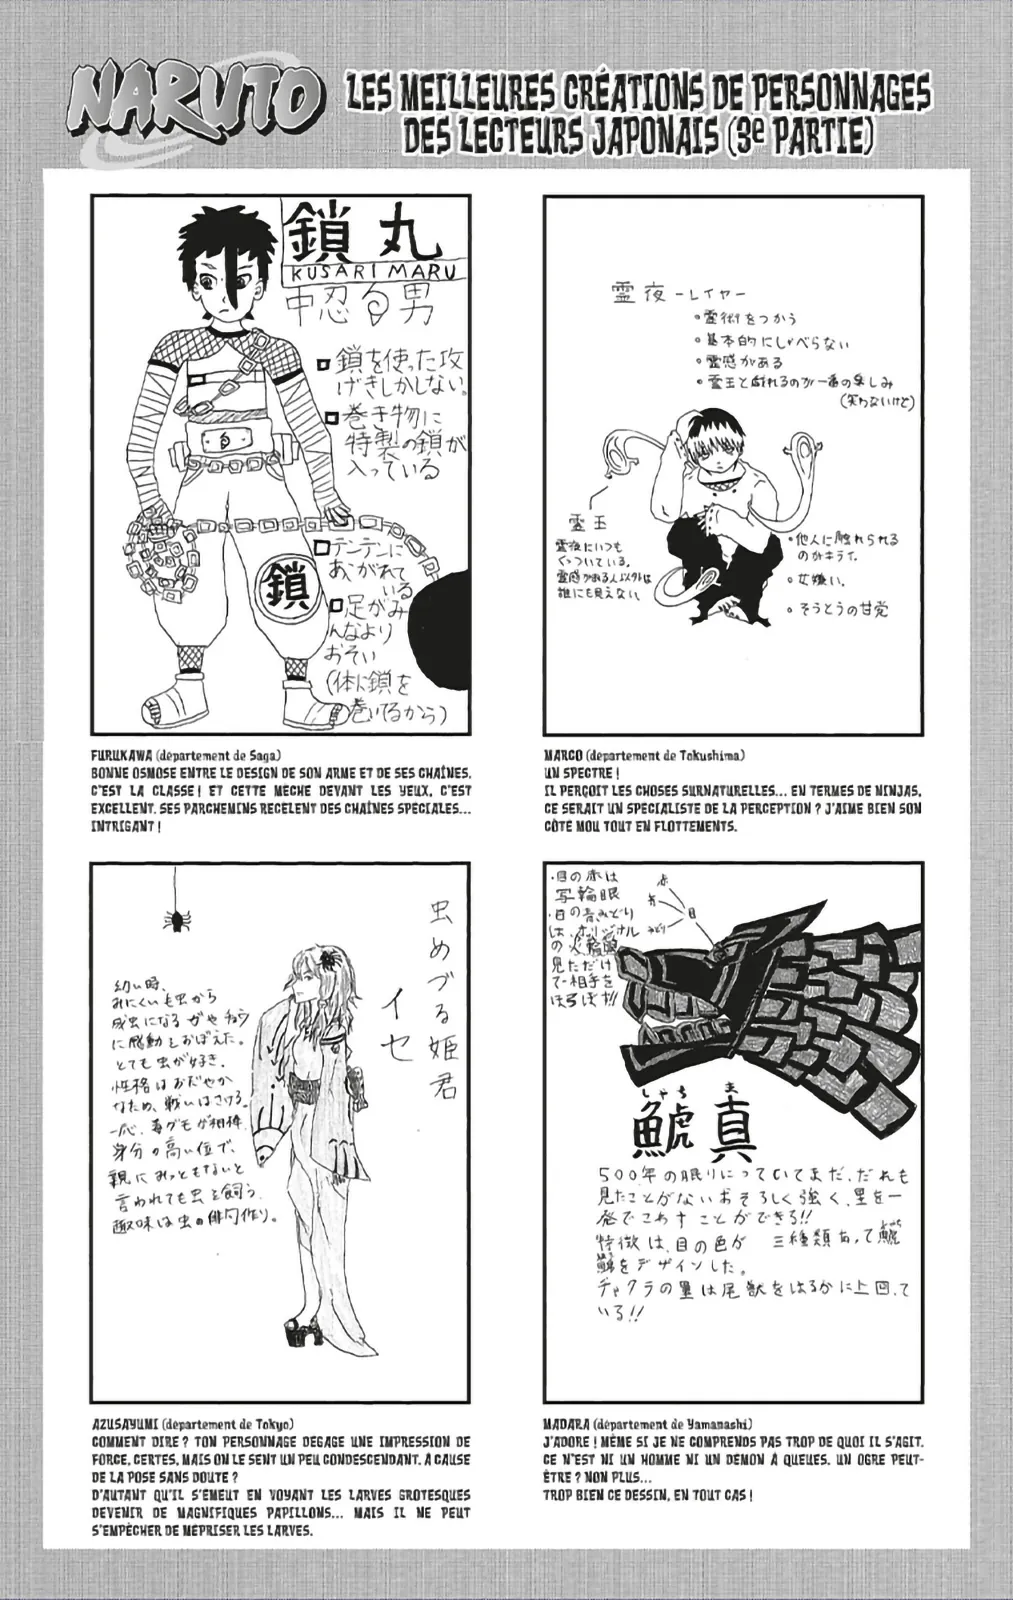 NARUTO
LES MEILLEURES CRÉATIONS DE PERSONNAGES
DES LECTEURS JAPONAIS (3e PARTIE)
鎖丸
KUSARI MARU
中忍 男
鎖を使った攻
げきしかしない。
巻き物に
特製の鎖が
入っている
テンテンに
あこがれて
いる
足がみ
んなより
おそい
(体に鎖を
巻いてるから)
鎖
FURUKAWA (département de Saga)
BONNE OSMOSE ENTRE LE DESIGN DE SON ARME ET DE SES CHAÎNES.
C'EST LA CLASSE! ET CETTE MÈCHE DEVANT LES YEUX, C'EST
EXCELLENT. SES PARCHEMINS RECÈLENT DES CHAÎNES SPÉCIALES...
INTRIGANT!
霊夜-レイヤー
霊術をつかう
基本的にしゃべらない
霊感がある
霊王と戯れるのが一番の楽しみ
(笑わないけど)
霊王
霊夜にいつも
くっついている。
霊感がある人以外は
誰にも見えない。
他人に触れられる
のがキライ。
女嫌い。
そうとうの甘党
MARCO (département de Tokushima)
UN SPECTRE!
IL PERÇOIT LES CHOSES SURNATURELLES... EN TERMES DE NINJAS,
CE SERAIT UN SPÉCIALISTE DE LA PERCEPTION? J'AIME BIEN SON
CÔTÉ MOU TOUT EN FLOTTEMENTS.
虫めづる姫君
イセ
幼い時、
みにくいも虫から
成虫になるガやチョウ
に感動をおぼえた。
とても虫が好き。
性格はおだやか
なため、戦いはさける。
一応、毒グモが相棒。
身分の高い位で、
親にみっともないと
言われても虫を飼う。
趣味は虫の俳句作り。
AZUSAYUMI (département de Tokyo)
COMMENT DIRE? TON PERSONNAGE DÉGAGE UNE IMPRESSION DE
FORCE, CERTES, MAIS ON LE SENT UN PEU CONDESCENDANT. À CAUSE
DE LA POSE SANS DOUTE?
D'AUTANT QU'IL S'ÉMEUT EN VOYANT LES LARVES GROTESQUES
DEVENIR DE MAGNIFIQUES PAPILLONS... MAIS IL NE PEUT
S'EMPÊCHER DE MÉPRISER LES LARVES.
・目の赤は
写輪眼
・目の青、みどり
は、オリジナル
の火輪眼
見ただけ
で相手を
ほろぼす!!
赤
青
みどり
目
しゃち ま
鯱真
500年の眠りについていてまだ、だれも
見たことがないおそろしく強く、星を一
発でこわすことができる!!
特徴は、目の色が 三種類あって鯱
をデザインした。
チャクラの量は尾獣をはるかに上回って
いる!!
MADARA (département de Yamanashi)
J'ADORE! MÊME SI JE NE COMPRENDS PAS TROP DE QUOI IL S'AGIT.
CE N'EST NI UN HOMME NI UN DÉMON À QUEUES. UN OGRE PEUT-
ÊTRE? NON PLUS...
TROP BIEN CE DESSIN, EN TOUT CAS!